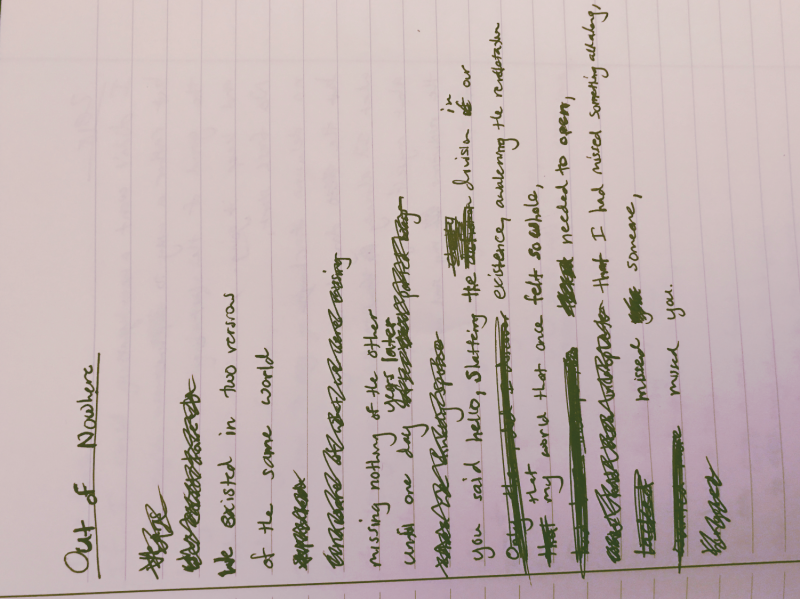 Out of Nowhere
We existed in two versions
of the same world
missing nothing of the other
until one day years later
you said hello, shutting the division in our
existence, awakening the revelation
that
my world that once felt so whole,
needed to open,
that I had missed something all along,
missed someone,
missed you.